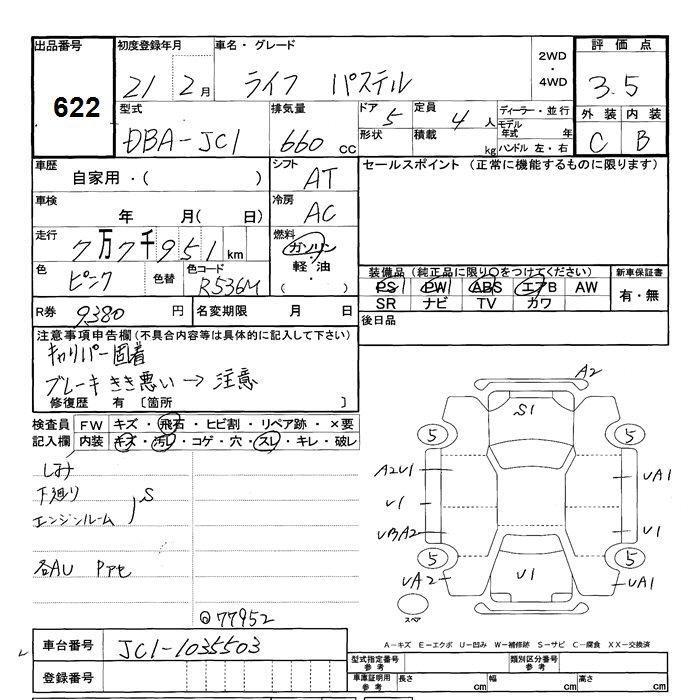 出品番号 622
初度登録年月 21年 2月
車名・グレード ライフ パステル
2WD ・ 4WD
評価点 3.5
外装 C 内装 B
型式 DBA-JC1
排気量 660 cc
ドア 5 形状
定員 4 人 積載 kg
ディーラー・並行
モデル年式 年
ハンドル 左・右
車歴 自家用・( )
シフト AT
セールスポイント (正常に機能するものに限ります)
車検 年 月( 日)
冷房 AC
走行 7万7千951 km
燃料 ガソリン ・ 軽油 ( )
色 ピンク 色替 色コード R536M
装備品 (純正品に限り〇をつけてください) 新車保証書
PS PW ABS エアB AW 有・無
SR ナビ TV カワ
R券 9380 円 名変期限 月 日
後日品
注意事項申告欄(不具合内容等は具体的に記入して下さい)
キャリパー固着
ブレーキきき悪い→注意
修復歴 有〔箇所 〕
検査員記入欄 FW キズ・飛石・ヒビ割・リペア跡・×要
内装 キズ・汚レ・コゲ・穴・スレ・キレ・破レ
しみ
下廻り S
エンジンルーム
各AU Pアセ
77952
A2
S1
5 5
A2U1 UA1
U1 U1
UBA2
5 5
UA2 U1 UA1
スペア
車台番号 JC1-1035503
登録番号
A-キズ E-エクボ U-凹み W-補修跡 S-サビ C-腐食 XX-交換済
型式指定番号参考 類別区分番号参考
車庫証明用参考 長さ cm 幅 cm 高さ cm